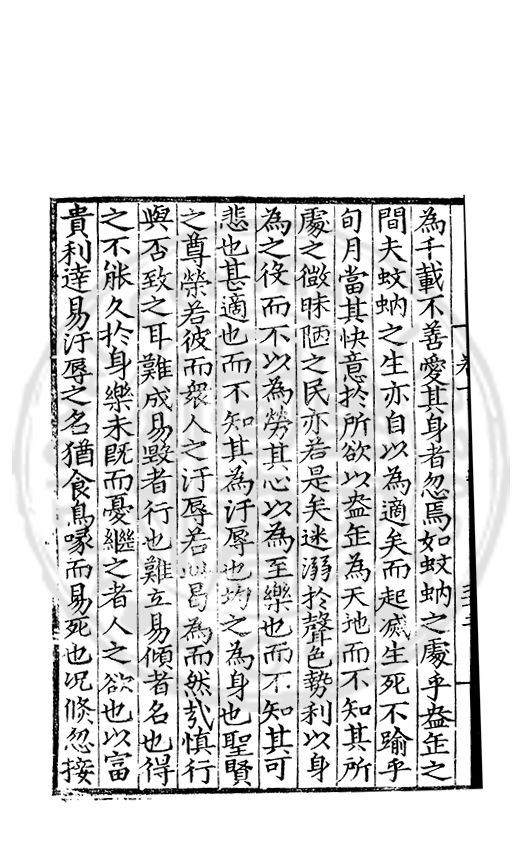 為千載不善愛其身者忽焉如蚊蚋之處乎盎缶之
間夫蚊蚋之生亦自以為適矣而起滅生死不踰乎
旬月當其快意於所欲以盎缶為天地而不知其所
處之微昧陋之民亦若是矣迷溺於聲色勢利以身
為之役而不以為勞其心以為至樂也而不知其可
悲也甚適也而不知其為汙辱也均之為身也聖賢
之尊榮若彼而衆人之汙辱若此曷為而然哉慎行
與否致之耳難成易毀者行也難立易傾者名也得
之不能久於身樂未既而憂繼之者人之欲也以富
貴利達易汙辱之名猶食鳥喙而易死也况倏忽接